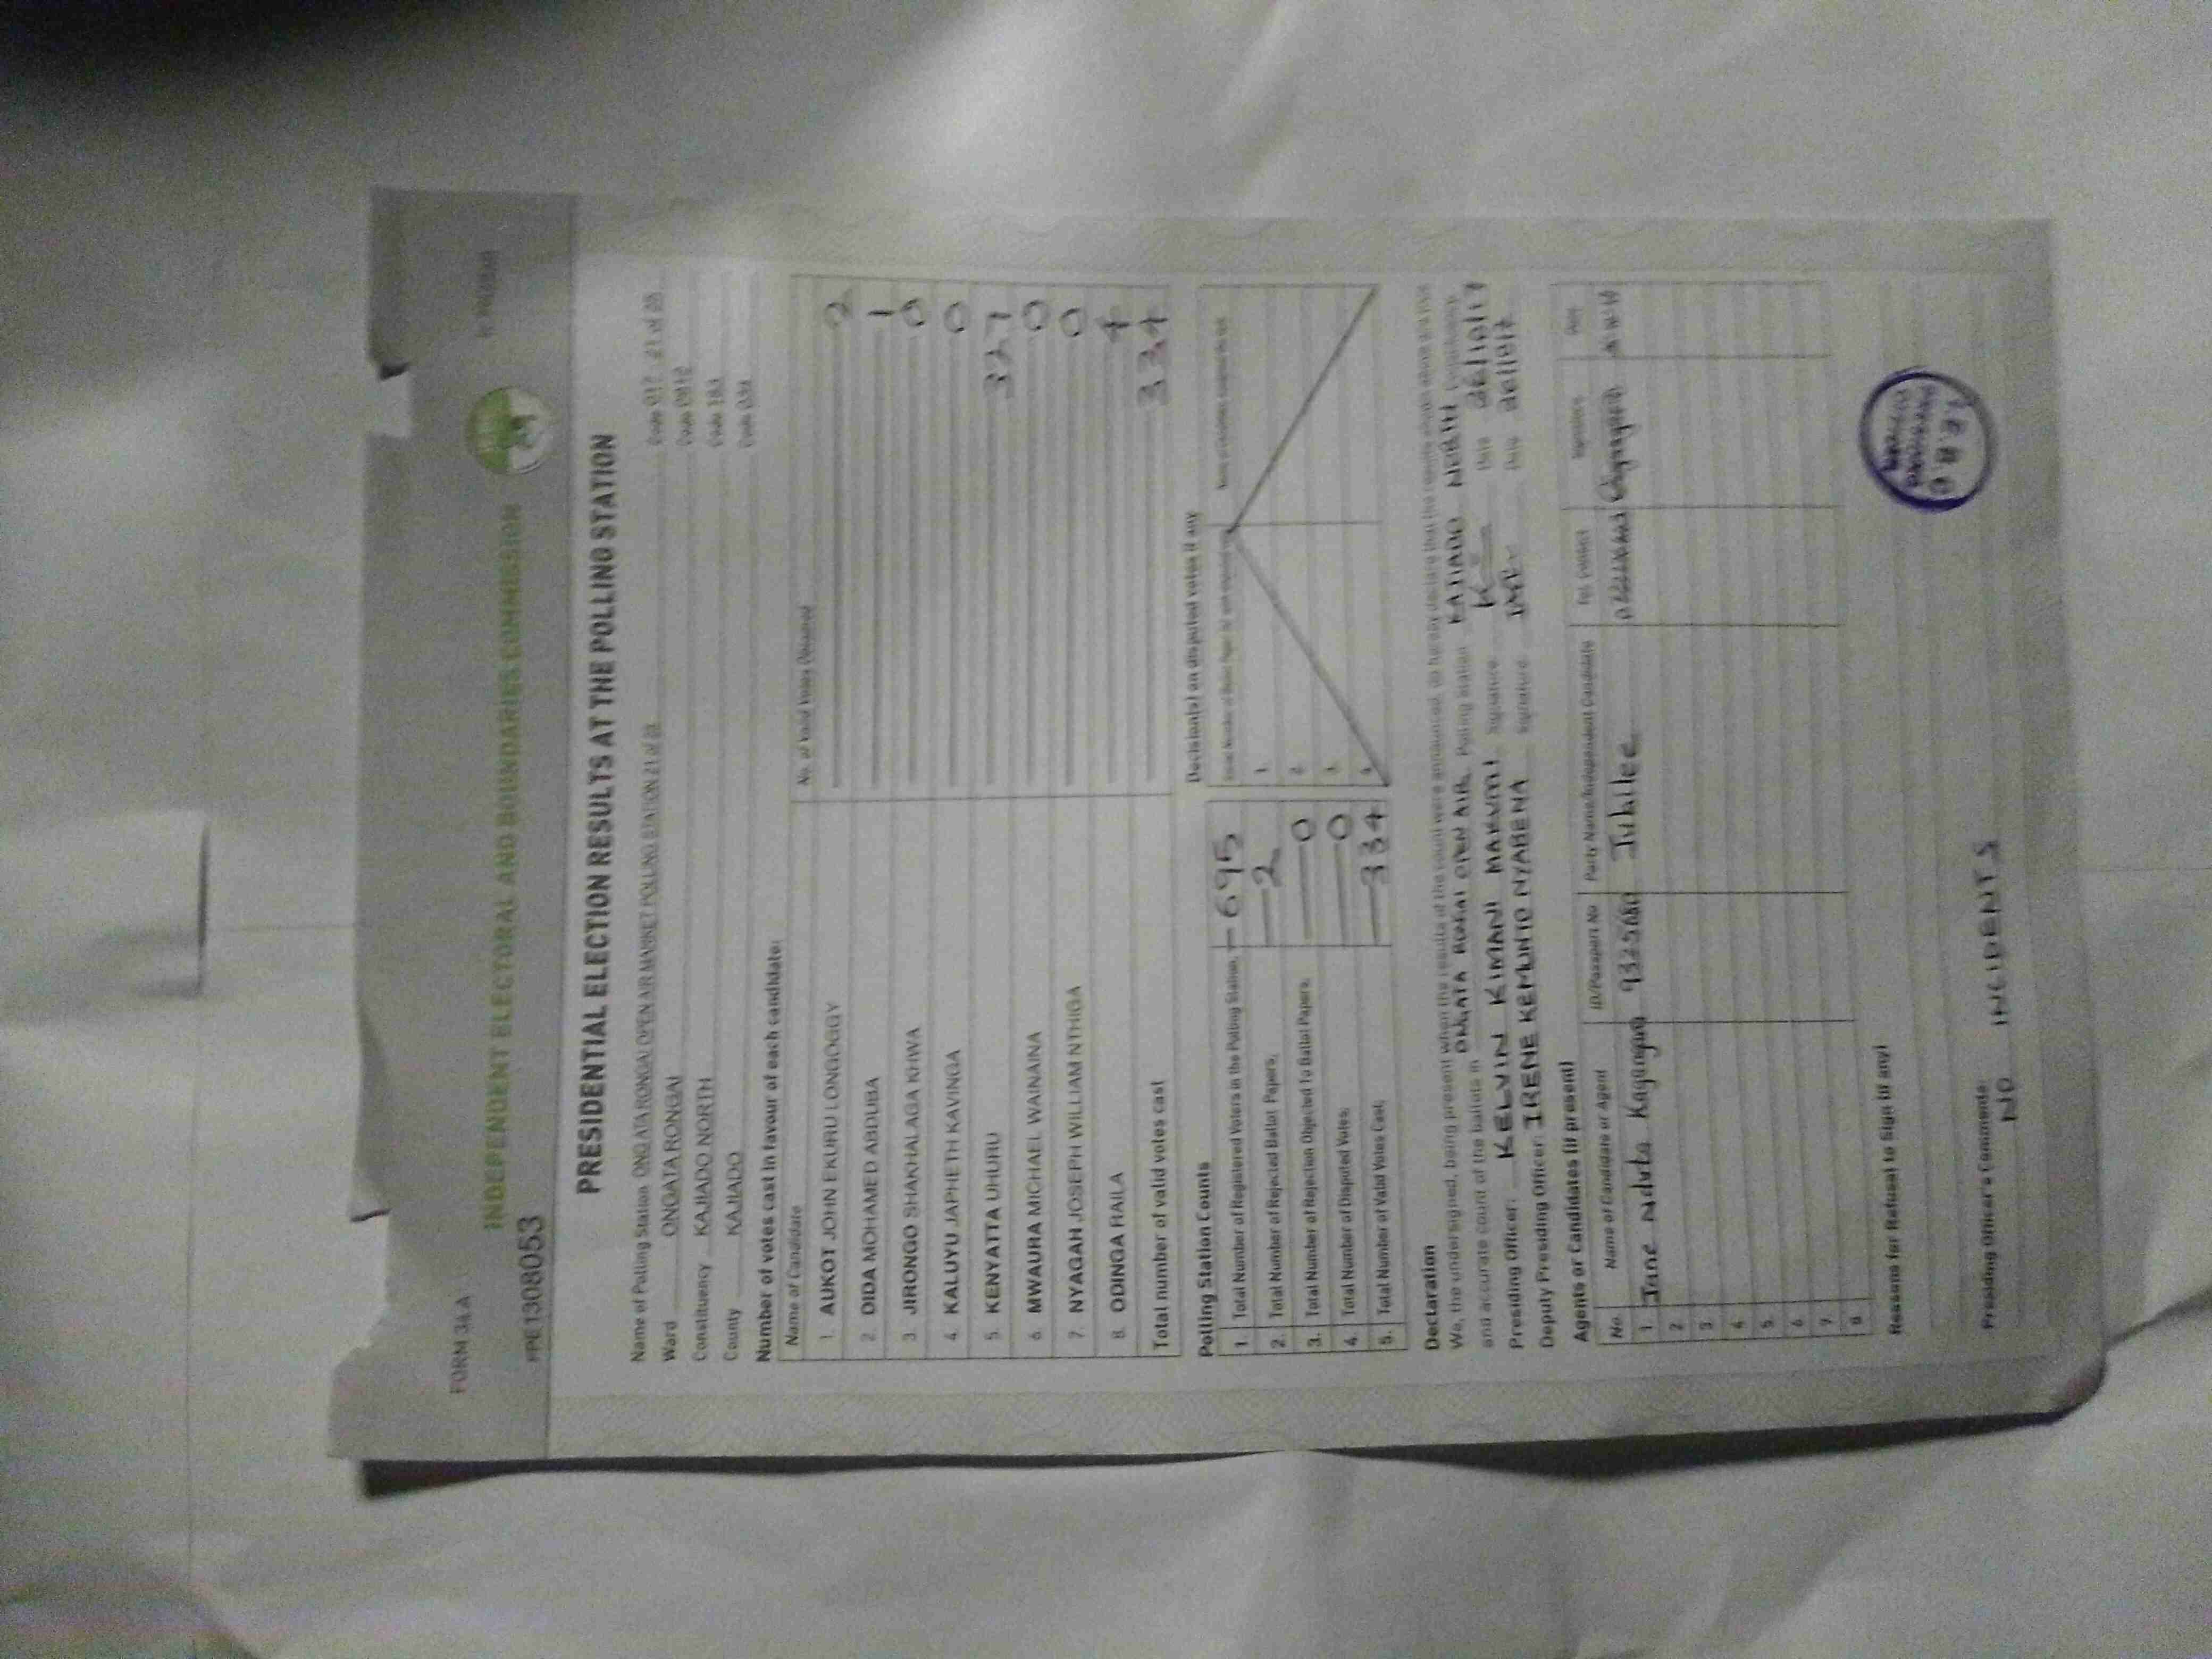 FORM 34A
INDEPENDENT ELECTORAL AND BOUNDARIES COMMISSION
PPE1308053
PRESIDENTIAL ELECTION RESULTS AT THE POLLING STATION
Name of Polling Station ONGATA RONGAI OPEN AIR MARKET POLLING STATION 21 of
Ward ONGATA RONGAI Code
Constituency KAJIADO NORTH Code 183
County KAJIADO Code 034
Number of votes cast in favour of each candidate:
Name of Candidate No. of Valid Votes Obtained
1. AUKOT JOHN EKURU LONGOGGY 2
2. DIDA MOHAMED ABDUBA 1
3. JIRONGO SHAKHALAGA KHWA 0
4. KALUYU JAPHETH KAVINGA 0
5. KENYATTA UHURU 327
6. MWAURA MICHAEL WAINAINA 0
7. NYAGAH JOSEPH WILLIAM NTHIGA 0
8. ODINGA RAILA 4
Total number of valid votes cast 334
Polling Station Counts Decision(s) on disputed votes if any
1. Total Number of Registered Voters in the Polling Station. 695
2. Total Number of Rejected Ballot Papers. 2
3. Total Number of Rejection Objected To Ballot Papers. 0
4. Total Number of Disputed Votes. 0
5. Total Number of Valid Votes Cast. 334
1.
2.
3.
4.
Declaration
We, the undersigned, being present when the results of the count were announced, do hereby declare that the results shown above are true
and accurate count of the ballots in ONGATA RONGAI OPEN AIR Polling Station KAJIADO NORTH Constituency.
Presiding Officer: KELVIN KIMANI Signature Date 26/10/17
Deputy Presiding Officer: IRENE KEMUNTO NYABENA Signature Date 26/10/17
Agents or Candidates (if present)
No. Name of Candidate or Agent ID/Passport No Party Name/Independent Candidate Tel. Contact Signature Date
1. Jane Nduta Jubilee
2.
3
4
5.
6
7.
8
Reasons for Refusal to Sign (if any)
Presiding Officer's Comments:
NO INCIDENTS
I.E.B.C
PRESIDING
OFFICER